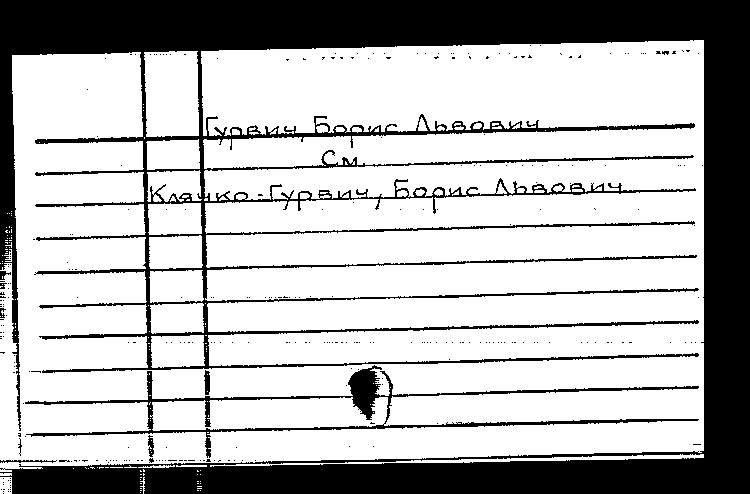 Гурвич, Борис Львович
См.
Клячко-Гурвич, Борис Львович